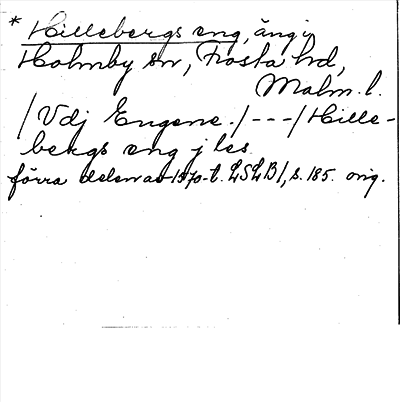 * Hillebergs äng, äng i
Holmby sn, Frosta hd,
Malm. l.
/ Vdj Engene. / --- / Hille-
bergs eng j les
förra delen av 1570-t. LSLB1, s. 185. orig.